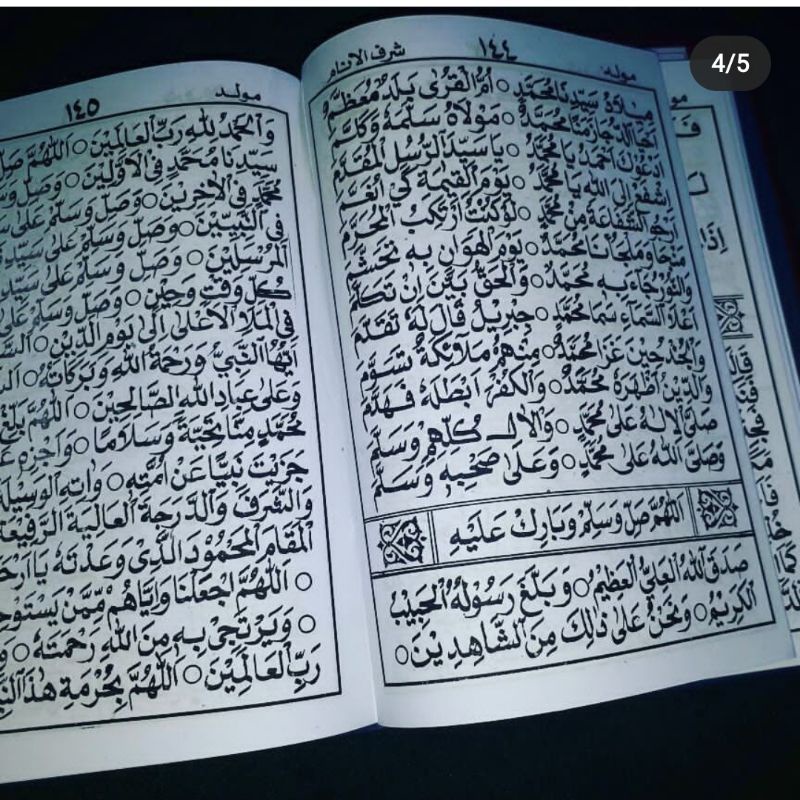 4/5
مولد ١٤٤ شرف الانام
ميلاد سيدنا محمد ○ ام القرى بلد معظم
محمد ○ مولاه سلمه وكلم
ادعوك احمد يا محمد ○ يا سيد الرسل المقدم
اشفع الى الله يا محمد ○ يوم القيمة كي
ارجو الشفاعة من محمد ○ لو كنت ارتكب المحرم
منجا وملجانا محمد ○ يوم الهوان به
والنور جاء به محمد ○ والحق بين ان تكلم
السماء سما محمد ○ جبريل قال له تقدم
غزا محمد ○ منهم ملائكة تسوم
والدين اظهره محمد ○ والكفر ابطله فهدم
صلى الاله على محمد ○ والال كلهم وسلم
وصلى الله على محمد ○ وعلى صحبه وسلم
اللهم صل وسلم وبارك عليه
صدق الله العلي العظيم ○ وبلغ رسوله الحبيب
الكريم ○ ونحن على ذلك من الشاهدين ○
مولد ١٤٥
والحمد لله رب العالمين ○ اللهم صل
سيدنا محمد في الاولين ○ وصل
محمد في الاخرين ○ وصل وسلم على
في النبيين ○ وصل وسلم على سيد
المرسلين ○ وصل وسلم على سيد
كل وقت وحين ○ وصل وسلم على
في الملا الاعلى الى يوم الدين ○
ايها النبي ورحمة الله وبركاته ○
وعلى عباد الله الصالحين ○ اللهم بلغ
محمد منا تحية وسلاما ○ واجزه
جزيت نبيا عن امته ○ واته الوسيلة
والشرف والدرجة العالية الرفيعة
المقام المحمود الذي وعدته يا ارحم
○ اللهم اجعلنا واياهم ممن يستوجب
○ ويرتجي به من الله رحمته ○
رب العالمين ○ اللهم بحرمة هذا النبي